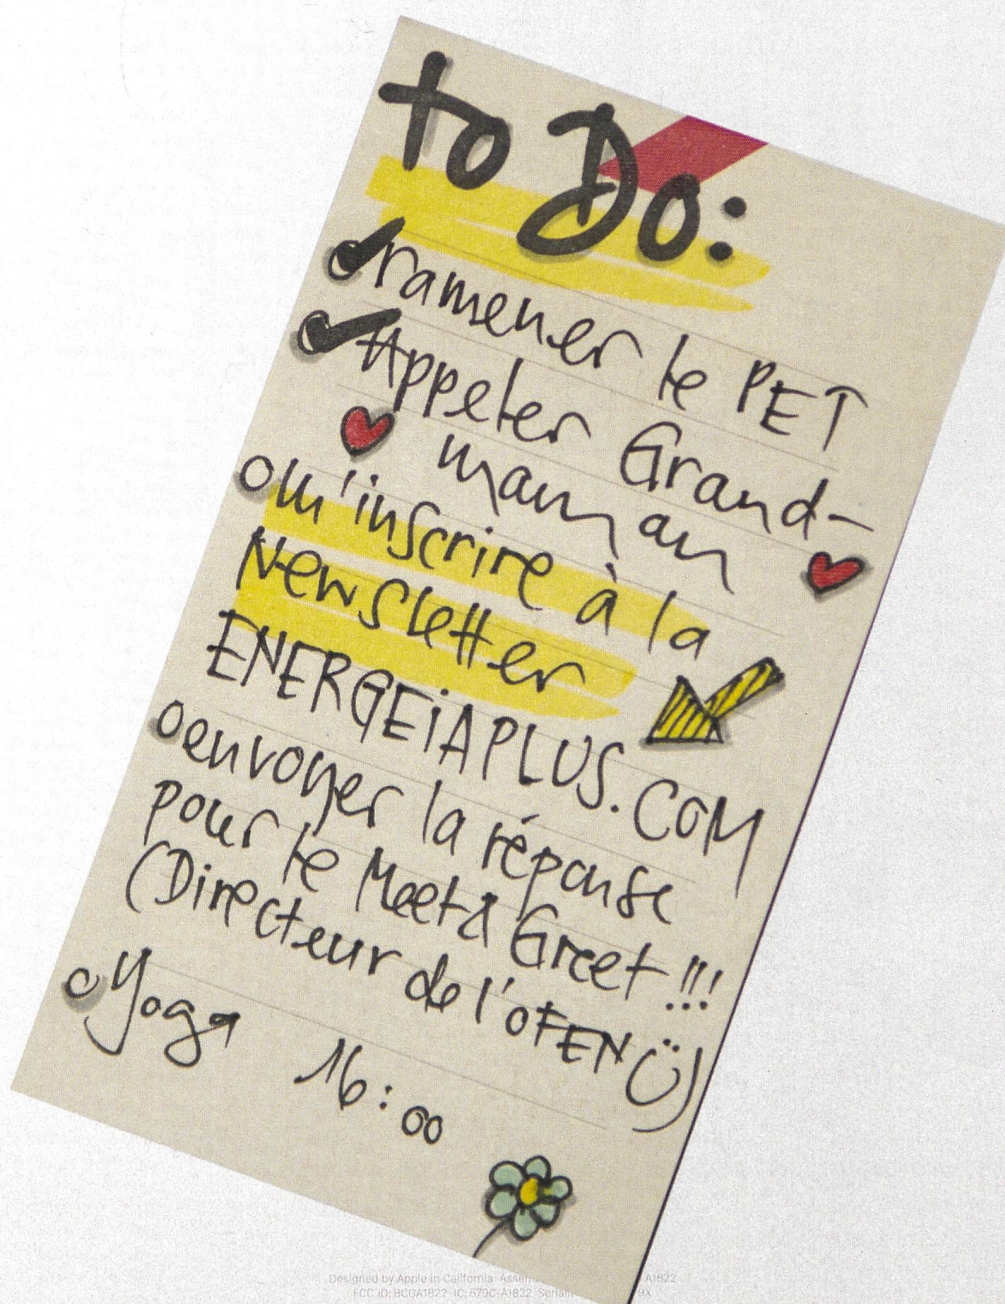 to Do:
ramener le PET
Appeler Grand-
maman
o m'inscrire à la
Newsletter
ENERGEiAPLUS.COM
o envoyer la réponse
pour le Meet & Greet !!!
(Directeur de l'OFEN Ü)
o Yoga 16:00
Designed by Apple in California Assem
A1822
FCC ID: BCGA1822 IC: 579C-A1822 Serial
9X